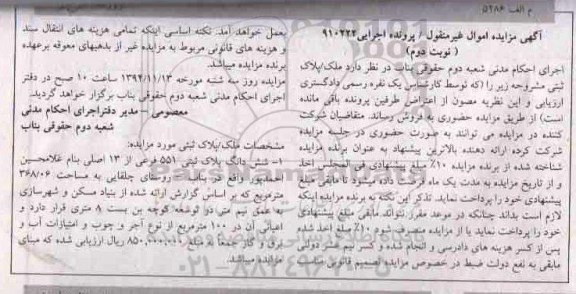 م الف ۵۲۸۶
آگهی مزایده اموال غیرمنقول / پرونده اجرایی ۹۱۰۲۲۲
( نوبت دوم)
اجرای احکام مدنی شعبه دوم حقوقی بناب در نظر دارد ملک/پلاک
ثبتی مشروحه زیر را (که توسط کارشناس یک نفره رسمی دادگستری
ارزیابی و این نظریه مصون از اعتراض طرفین پرونده باقی مانده
است) از طریق مزایده حضوری به فروش رساند. متقاضیان شرکت
کننده در مزایده می توانند به صورت حضوری در جلسه مزایده
شرکت کرده ارائه دهنده بالاترین پیشنهاد به عنوان برنده مزایده
شناخته شده از برنده مزایده ۱۰٪ مبلغ پیشنهادی فی المجلس اخذ
و از تاریخ مزایده به مدت یک ماه فرصت داده میشود تا مابقی مبلغ
پیشنهادی خود را پرداخت نماید. تذکر این نکته به برنده مزایده اینکه
لازم است بداند چنانکه در موعد مقرر نتواند مابقی مبلغ پیشنهادی
خود را پرداخت نماید یا از مزایده منصرف شود ۱۰٪ مبلغ اخذ شده
پس از کسر هزینه های دادرسی و انجام شده و کسر نیم عشر دولتی
مابقی به نفع دولت ضبط در خصوص مزایده تصمیم قانونی مناسب
بعمل خواهد آمد. نکته اساسی اینکه تمامی هزینه های انتقال سند
و هزینه های قانونی مربوط به مزایده غیر از بدهیهای معوقه برعهده
برنده مزایده میباشد.
مزایده روز سه شنبه مورخه ۱۳۹۲/۱۱/۱۳ ساعت ۱۰ صبح در دفتر
اجرای احکام مدنی شعبه دوم حقوقی بناب برگزار خواهد گردید.
معصومی - مدیر دفتراجرای احکام مدنی
شعبه دوم حقوقی بناب
مشخصات ملک/پلاک ثبتی مورد مزایده:
۱- شش دانگ پلاک ثبتی ۵۵۱ فرعی از ۱۳ اصلی بنام غلامحسین
اسمدپور واقع در بناب - روستای چلقایی به مساحت ۳۶۸/۰۶
مترمربع که بر اساس گزارش ارائه شده از بنیاد مسکن و شهرسازی
به عمق نیم متر در توسعه کوچه بن بست ۸ متری قرار دارد و
اعیانی آن در ۱۰۰ مترمربع از نوع آجر و چوب و امتیازات آب و
برق و گاز جمعاً به مبلغ ۸۵۰,۰۰۰,۰۰۰ ریال ارزیابی شده که مبنای
مزایده میباشد.